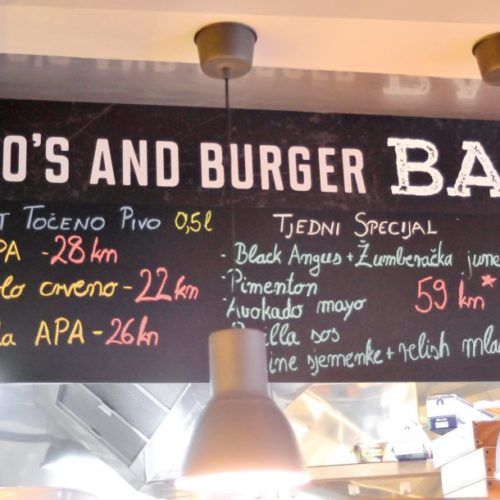 O'S AND BURGER BA
T TOČENO PIVO 0,5l
PA - 28 kn
lo crveno - 22 kn
la APA - 26 kn
TJEDNI SPECIJAL
- Black Angus + Žumberačka june
- Pimenton
- Avokado mayo
lla sos
ine sjemenke + relish mla
59 kn *